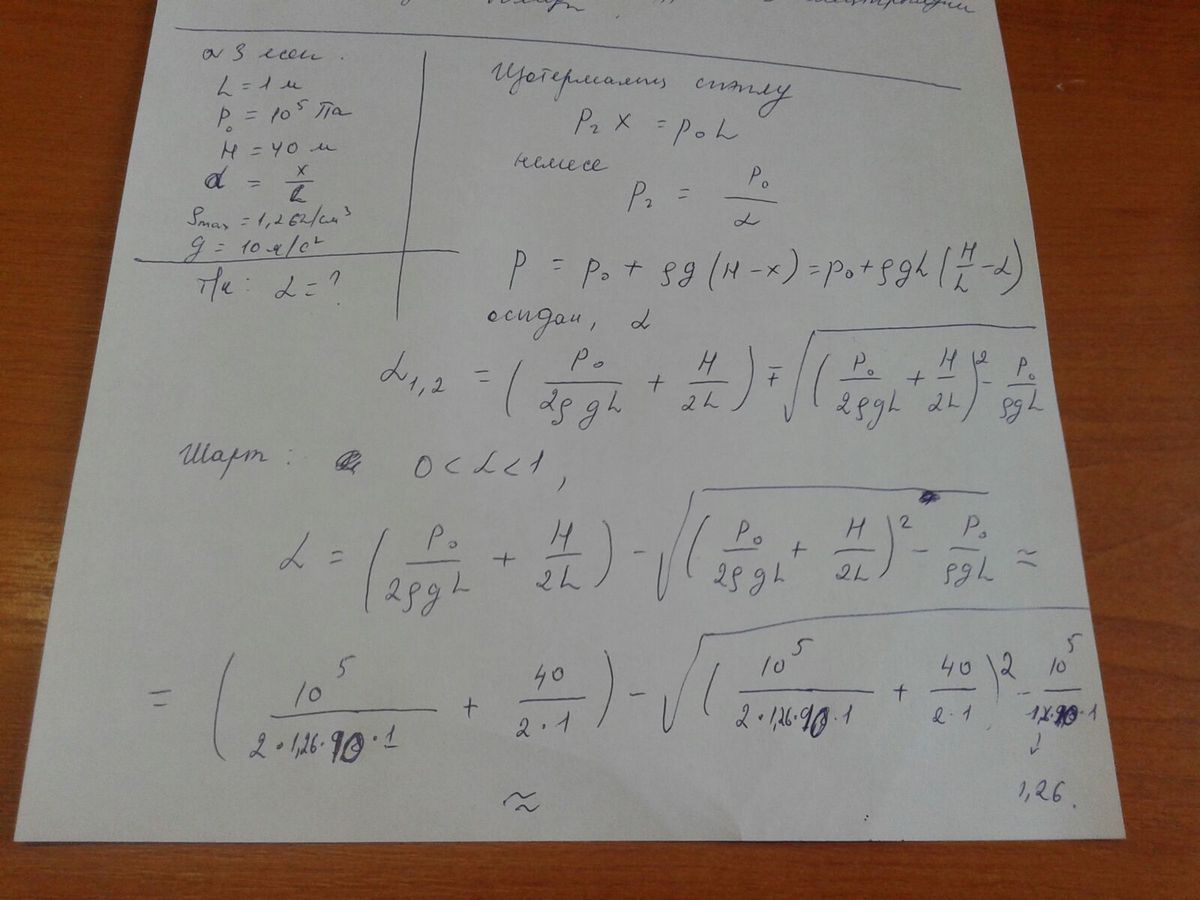 №3 есеп.
L = 1 м
P₀ = 10⁵ Па
H = 40 м
α = x/L
ρmax = 1,26г/см³
g = 10 м/с²
Т/к: α = ?
Изотермалық сығылу
P₂ x = p₀ L
немесе
P₂ = P₀/α
P = p₀ + ρg (H – x) = p₀ + ρgL (H/L – α)
осыдан, α
α₁,₂ = (P₀/2ρgL + H/2L) ∓ √((P₀/2ρgL + H/2L)² – P₀/ρgL)
Шарт: 0 < α < 1,
α = (P₀/2ρgL + H/2L) – √((P₀/2ρgL + H/2L)² – P₀/ρgL) ≈
= (10⁵/2·1,26·10·1 + 40/2·1) – √((10⁵/2·1,26·10·1 + 40/2·1)² – 10⁵/1,26·10·1
↓
≈ 1,26.